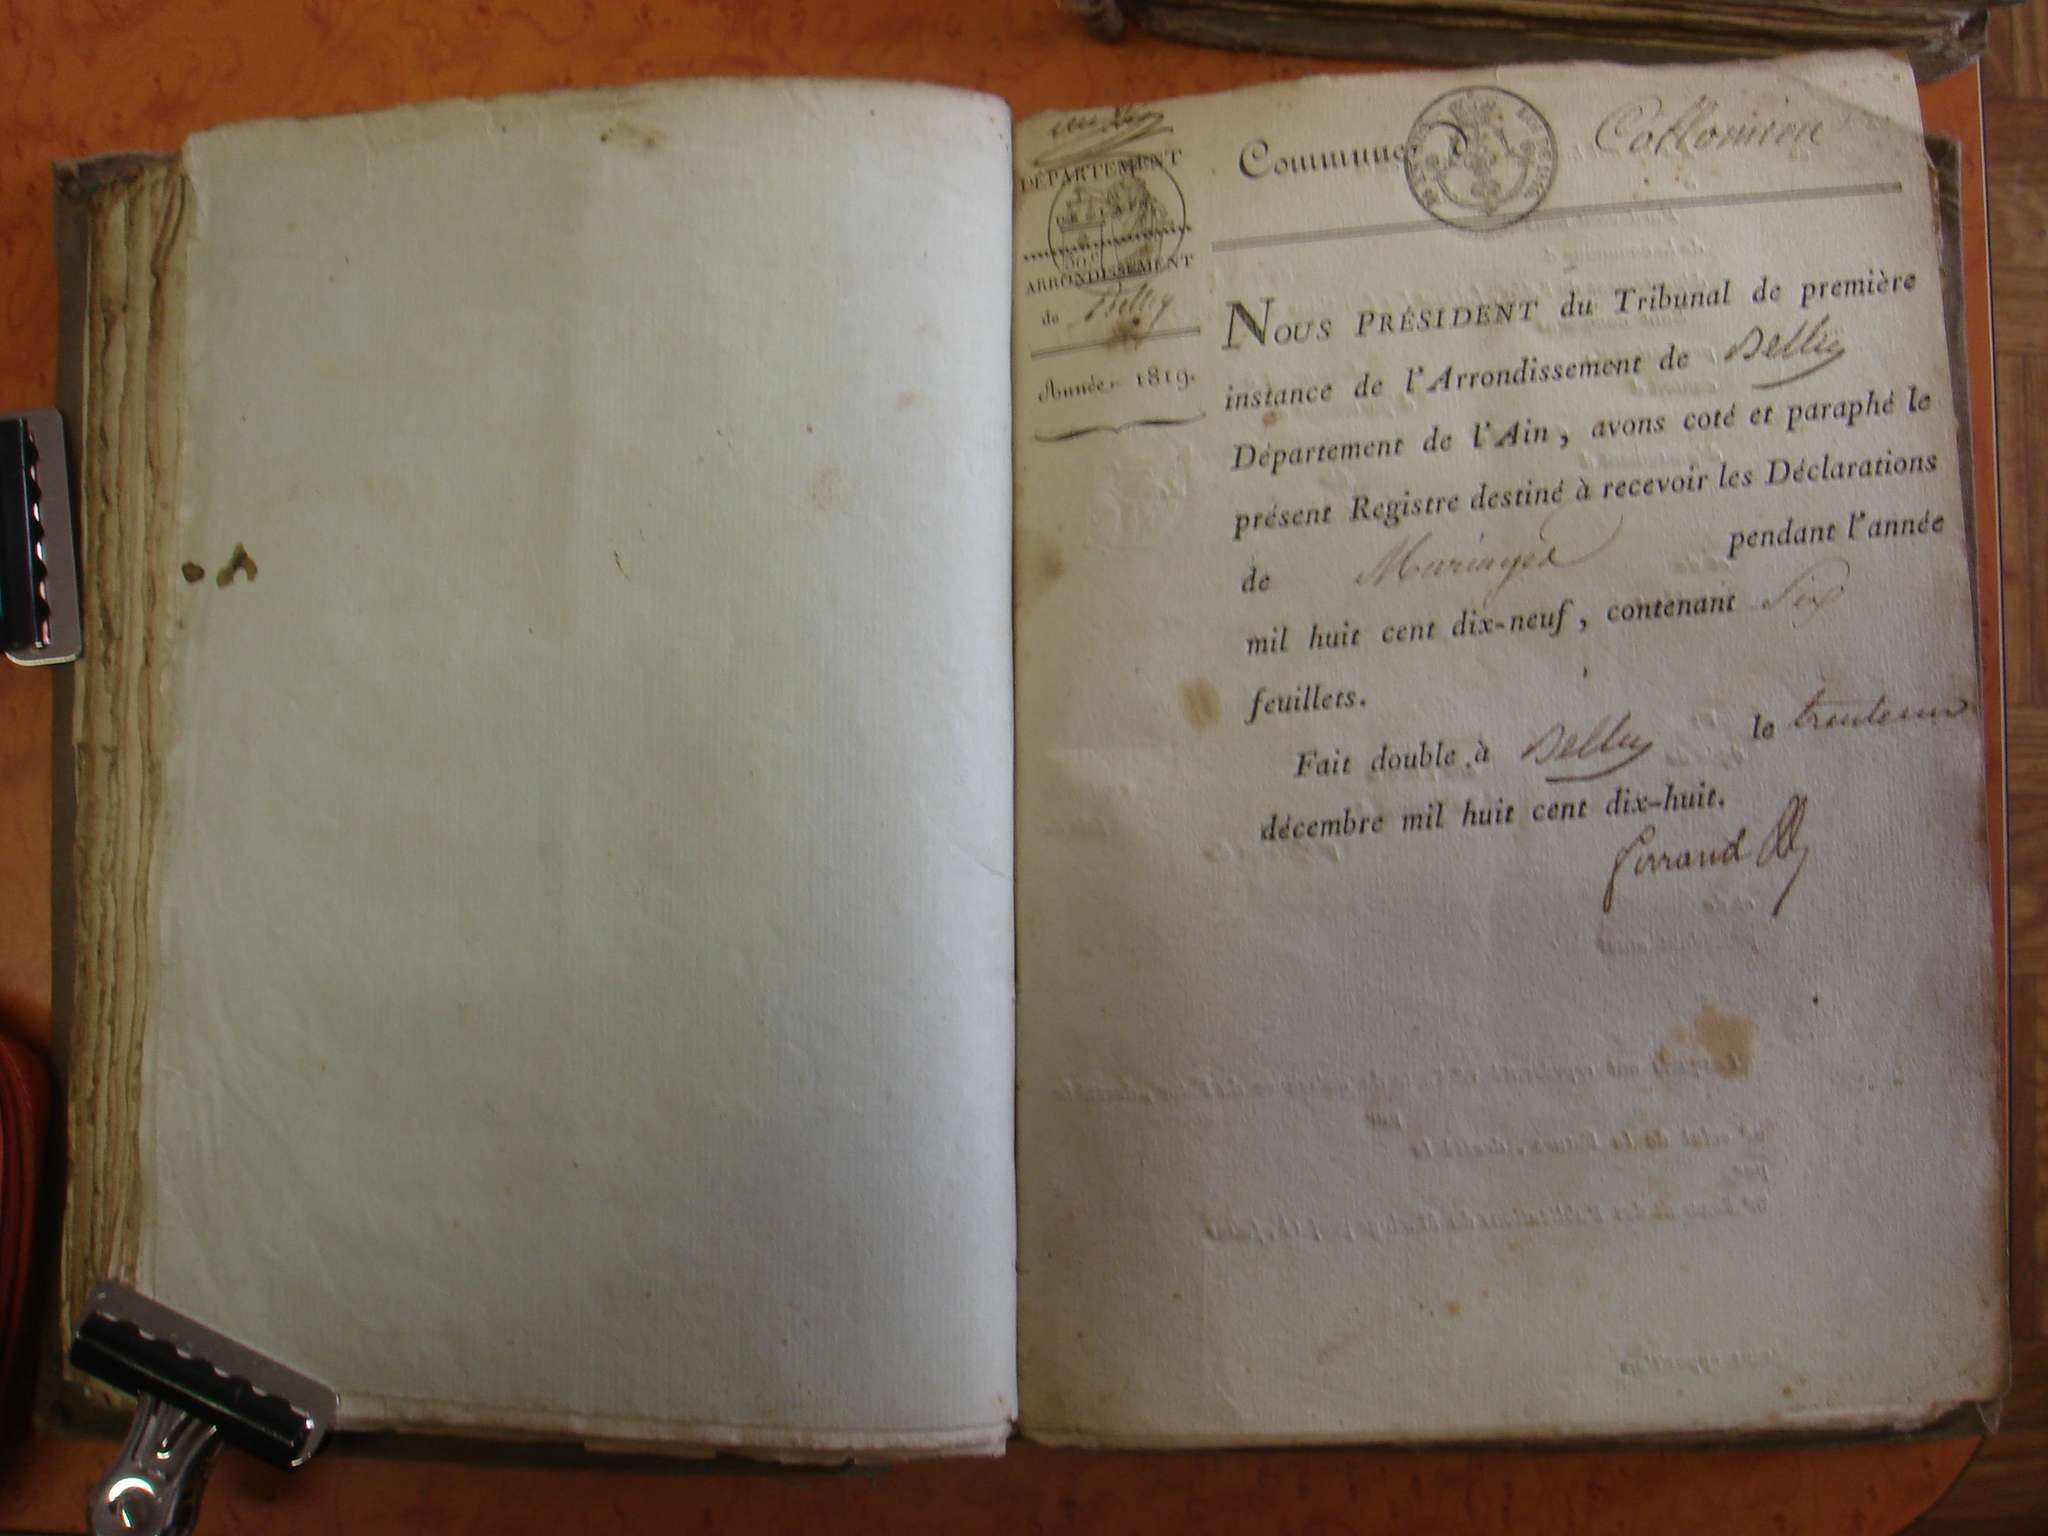 DÉPARTEMENT
ARRONDISSEMENT
de Belley
Année 1819.
Commune d Collomieu
NOUS PRÉSIDENT du Tribunal de première
instance de l'Arrondissement de Belley
Département de l'Ain, avons coté et paraphé le
présent Registre destiné à recevoir les Déclarations
de Mariages pendant l'année
mil huit cent dix-neuf, contenant Six
feuillets.
Fait double à Belley le trente un
décembre mil huit cent dix-huit.